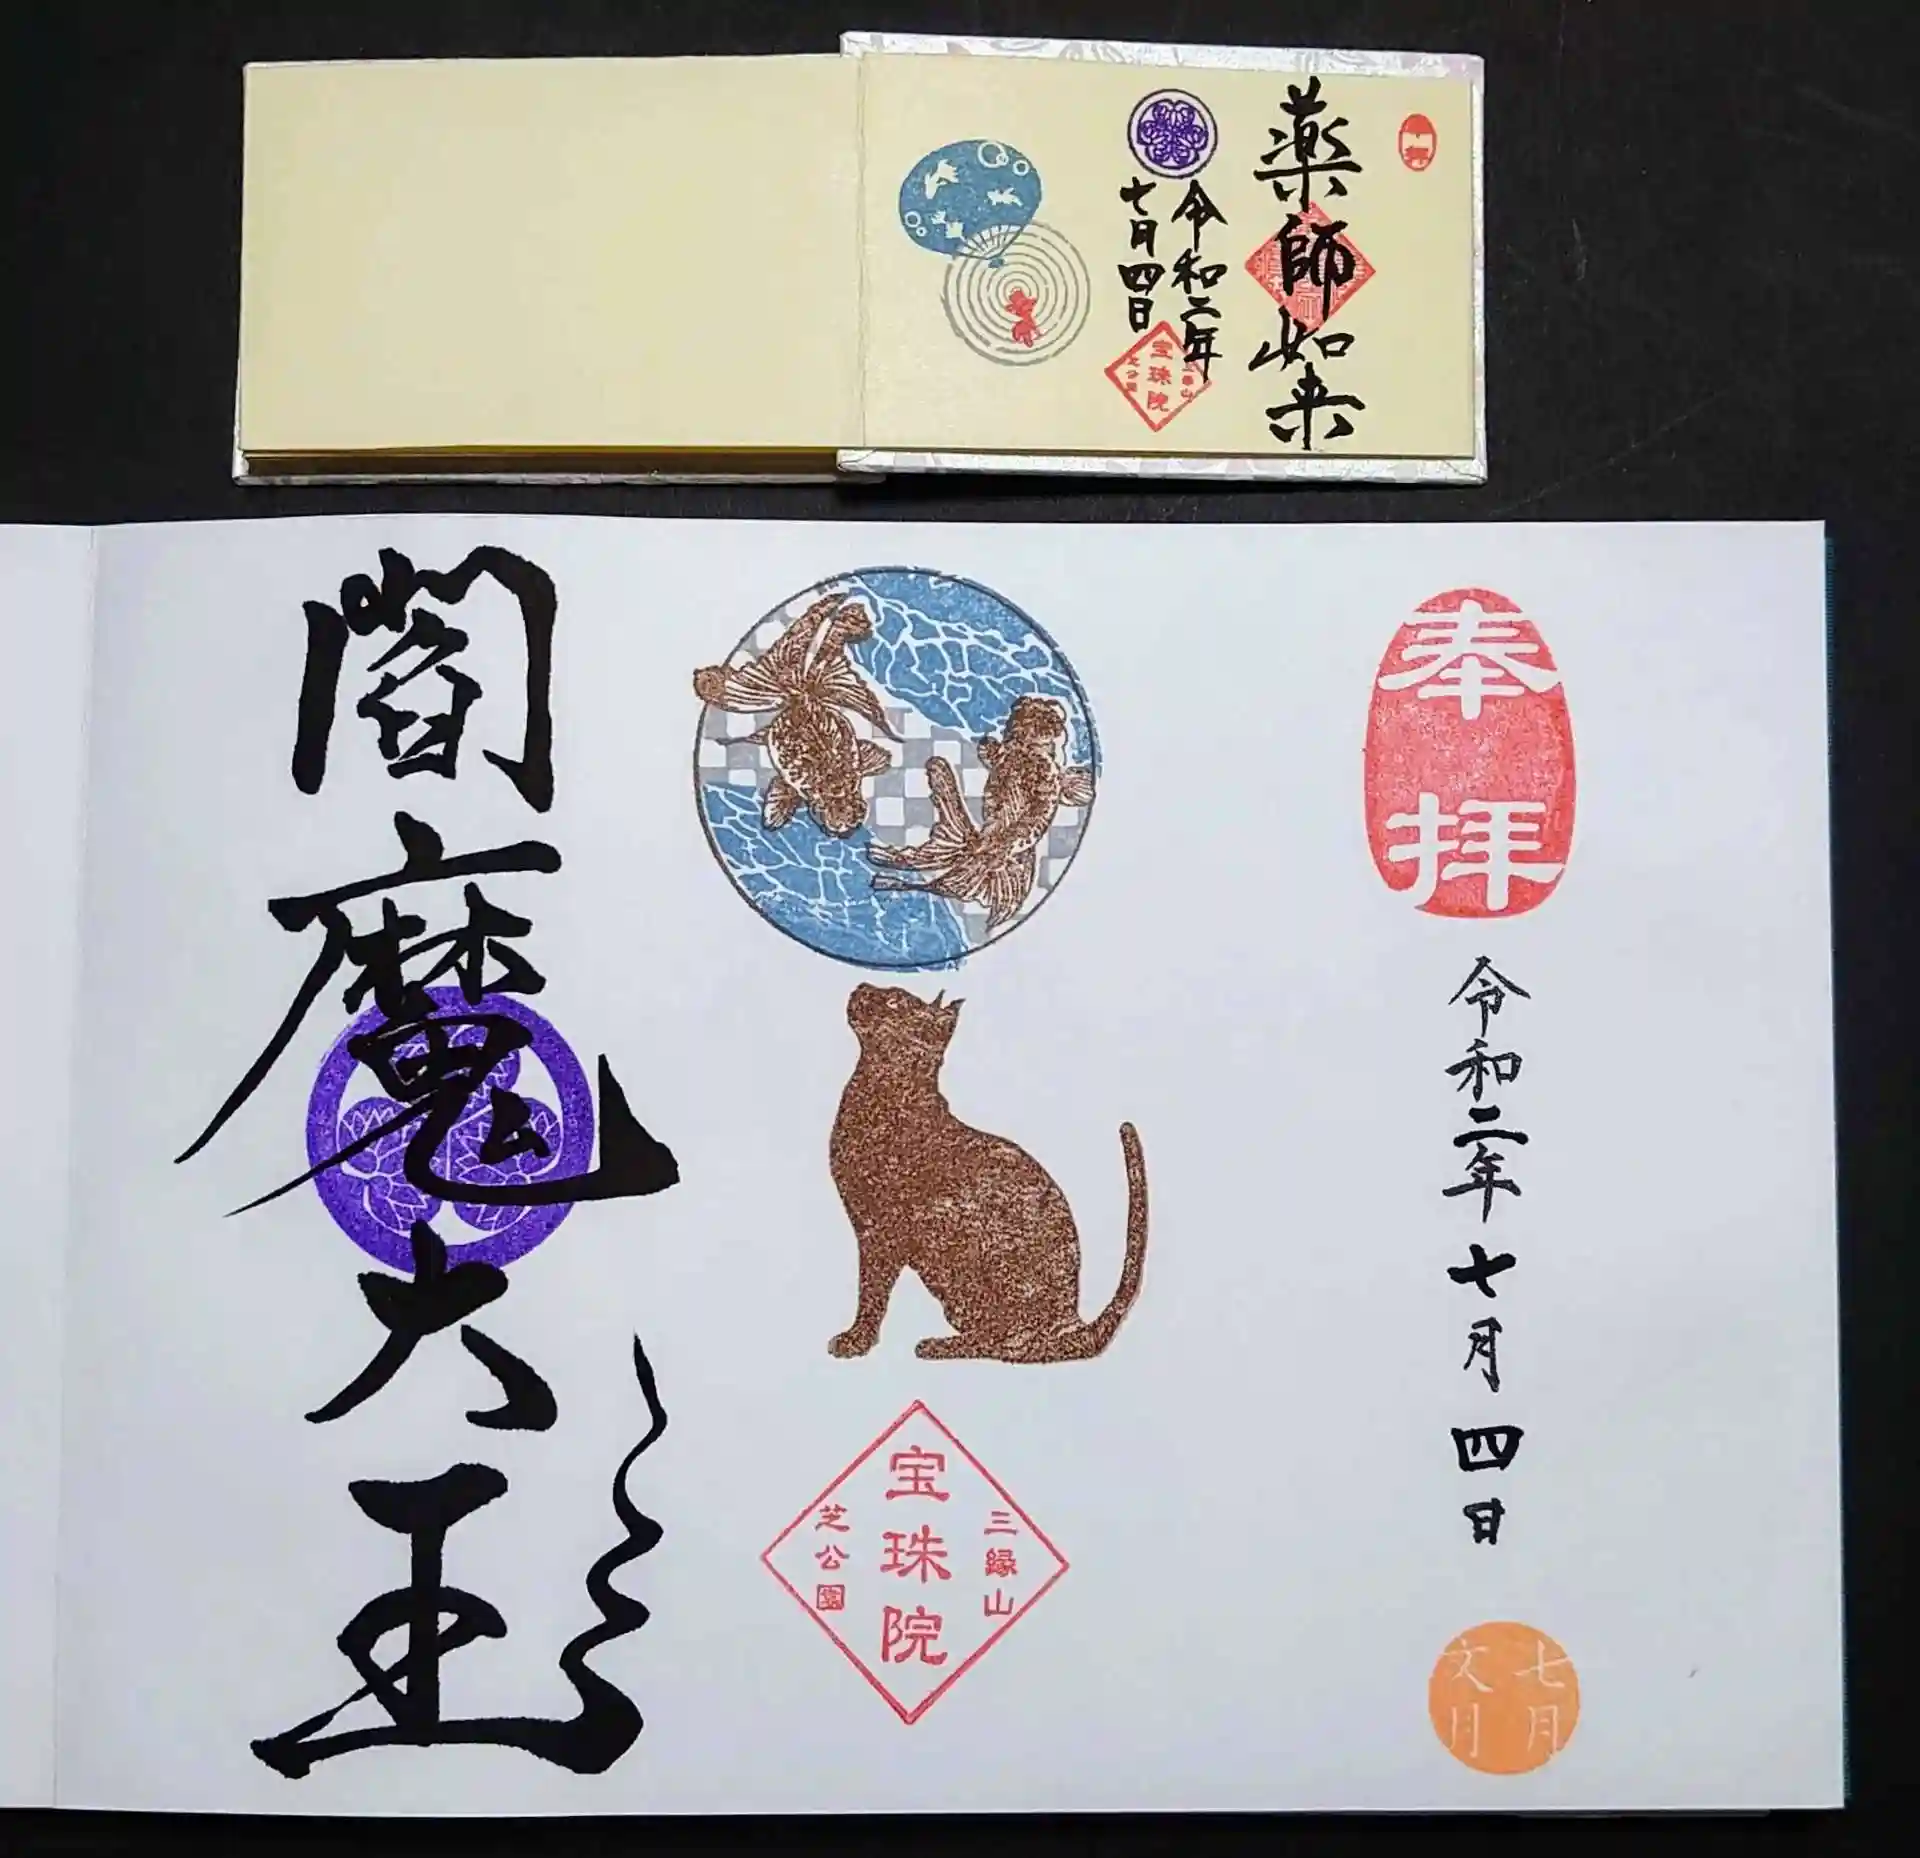 薬師如来
令和二年
七月四日
三縁山
宝珠院
奉拝
令和二年七月四日
七月
文月
三縁山
宝珠院
芝公園
閻魔大王